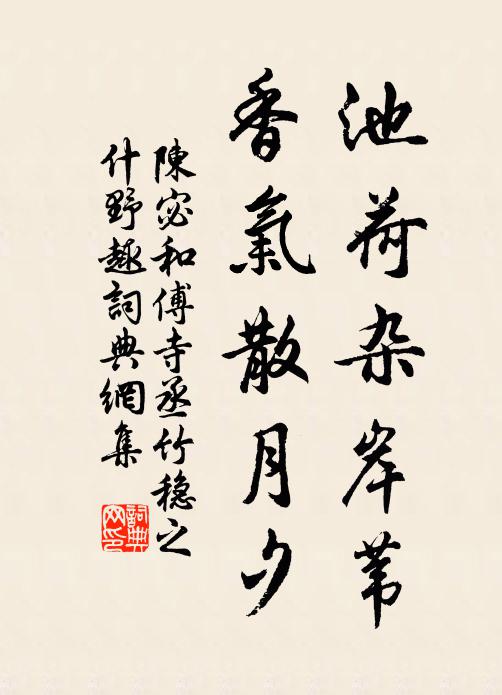 池荷杂岸苇
香氣散月夕
陳宓和傅寺丞竹穏之
什野趣詞典網集
詞典
网印